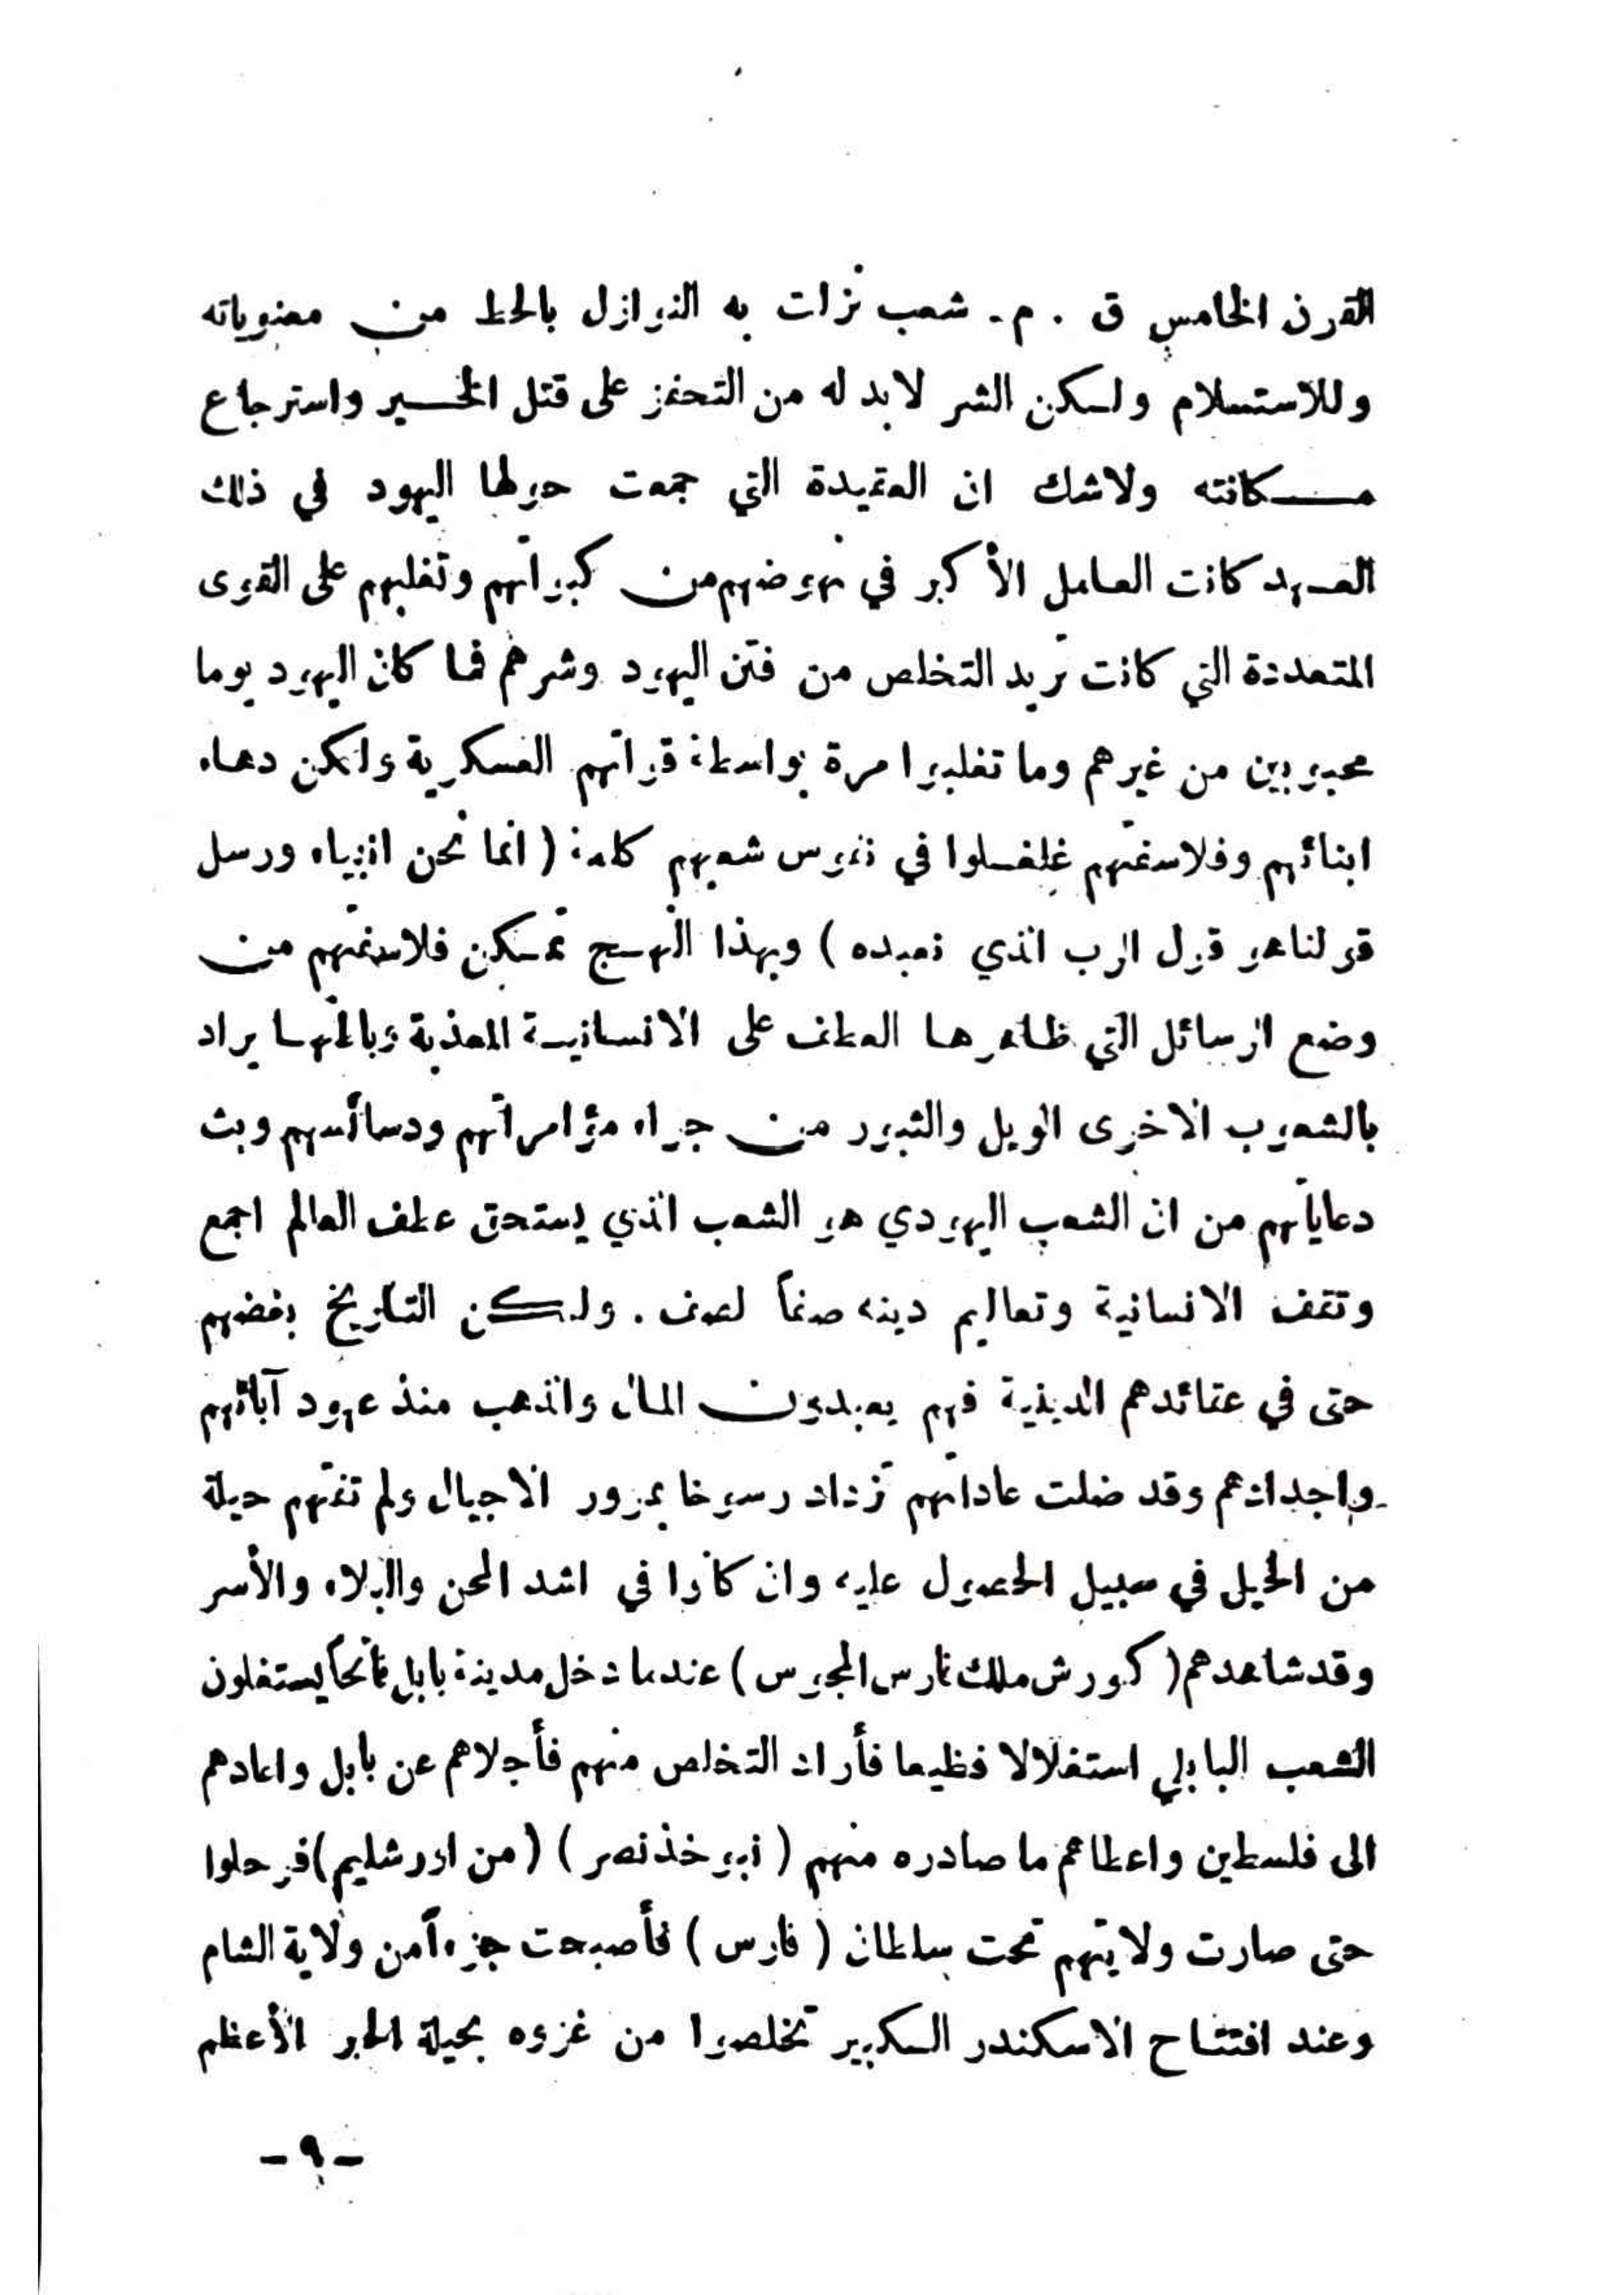 القرن الخامس ق . م . شعب نزلت به النوازل بالحط من معنوياته
وللاستسلام ولكن الشر لابد له من التحفز على قتل الخير واسترجاع
مكانته ولاشك ان العقيدة التي جمعت حولها اليهود في ذلك
العهد كانت العامل الأكبر في نهوضهم من كبواتهم وتغلبهم على القوى
المتعددة التي كانت تريد التخلص من فتن اليهود وشرهم فما كان اليهود يوما
محبوبين من غيرهم وما تغلبوا مرة بواسطة قواتهم العسكرية ولكن دهاء
ابنائهم وفلاسفتهم غلغلوا في نفوس شعبهم كلمة ( انما نحن انبياء ورسل
قولنا هو قول الرب الذي نعبده ) وبهذا النهج تمكن فلاسفتهم من
وضع الرسائل التي ظاهرها العطف على الانسانية المعذبة وباطنها يراد
بالشعوب الاخرى الويل والثبور من جراء مؤامراتهم ودسائسهم وبث
دعاياتهم من ان الشعب اليهودي هو الشعب الذي يستحق عطف العالم اجمع
وتقف الانسانية وتعاليم دينه صفاً لصف . ولكن التاريخ يفضهم
حتى في عقائدهم الدينية فهم يعبدون المال والذهب منذ عهود آبائهم
واجدادهم وقد ضلت عاداتهم تزداد رسوخا بمرور الاجيال ولم تفتهم حيلة
من الحيل في سبيل الحصول عليه وان كانوا في اشد المحن والبلاء والأسر
وقد شاهدهم ( كورش ملك فارس المجوس ) عندما دخل مدينة بابل فاتحاً يستغلون
الشعب البابلي استغلالا فظيعا فأراد التخلص منهم فأجلاهم عن بابل واعادهم
الى فلسطين واعطاهم ما صادره منهم ( نبوخذنصر ) ( من اورشليم ) فرحلوا
حتى صارت ولايتهم تحت سلطان ( فارس ) فأصبحت جزءاً من ولاية الشام
وعند افتتاح الاسكندر الكبير تخلصوا من غزوه بحيلة الحبر الأعظم
- ٩ -